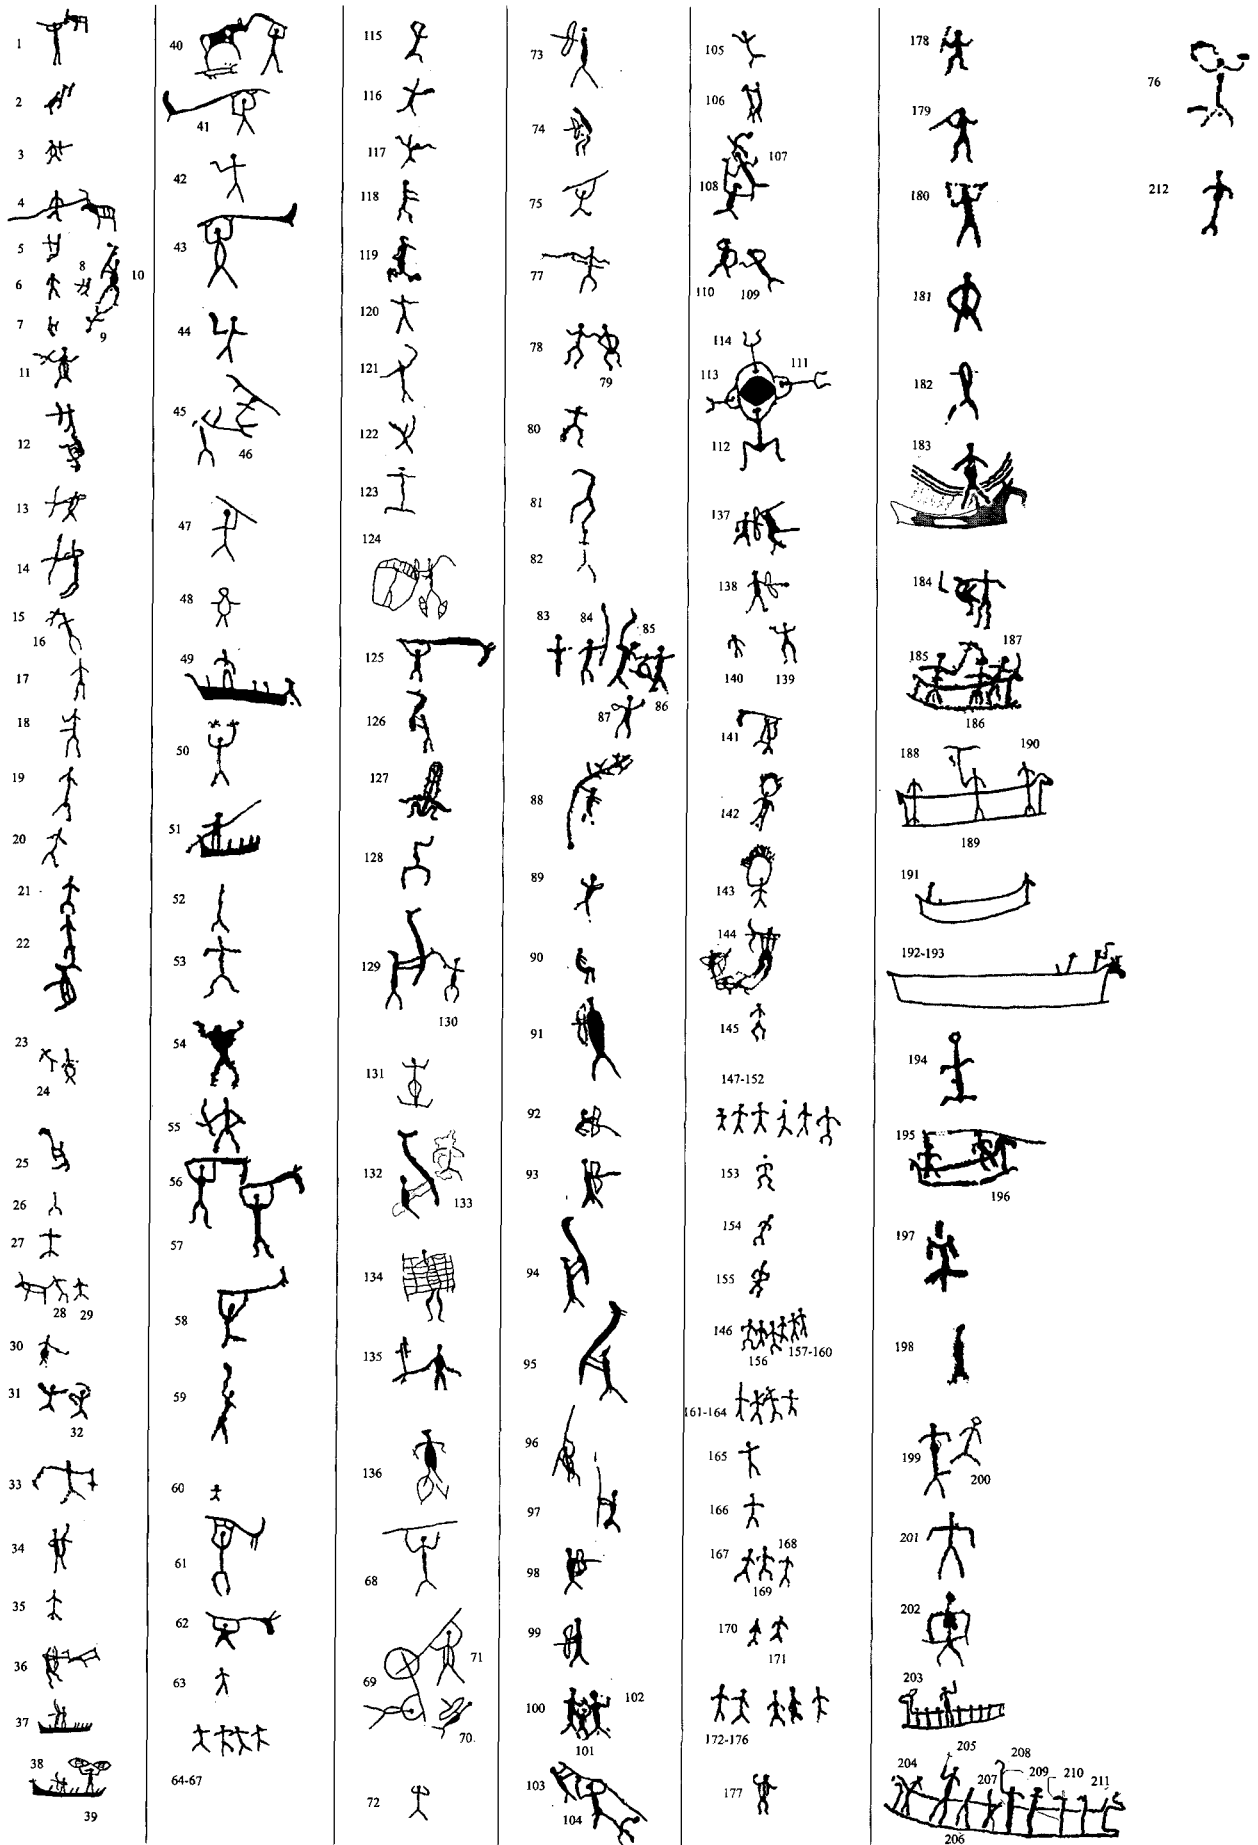 1
2
3
4
5
6
8
10
7
9
11
12
13
14
15
16
17
18
19
20
21
22
23
24
25
26
27
28 29
30
31
32
33
34
35
36
37
38
39
40
41
42
43
44
45
46
47
48
49
50
51
52
53
54
55
56
57
58
59
60
61
62
63
64-67
115
116
117
118
119
120
121
122
123
124
125
126
127
128
129
130
131
132
133
134
135
136
68
69
71
70.
72
73
74
75
77
78
79
80
81
82
83 84 85
86
87
88
89
90
91
92
93
94
95
96
97
98
99
100 102
101
103
104
105
106
107
108
110 109
114
113 111
112
137
138
140 139
141
142
143
144
145
147-152
153
154
155
146
156 157-160
161-164
165
166
167 168
169
170
171
172-176
177
178
179
180
181
182
183
184
185 187
186
188 190
189
191
192-193
194
195
196
197
198
199
200
201
202
203
204 205 208
207 209 210 211
206
76
212